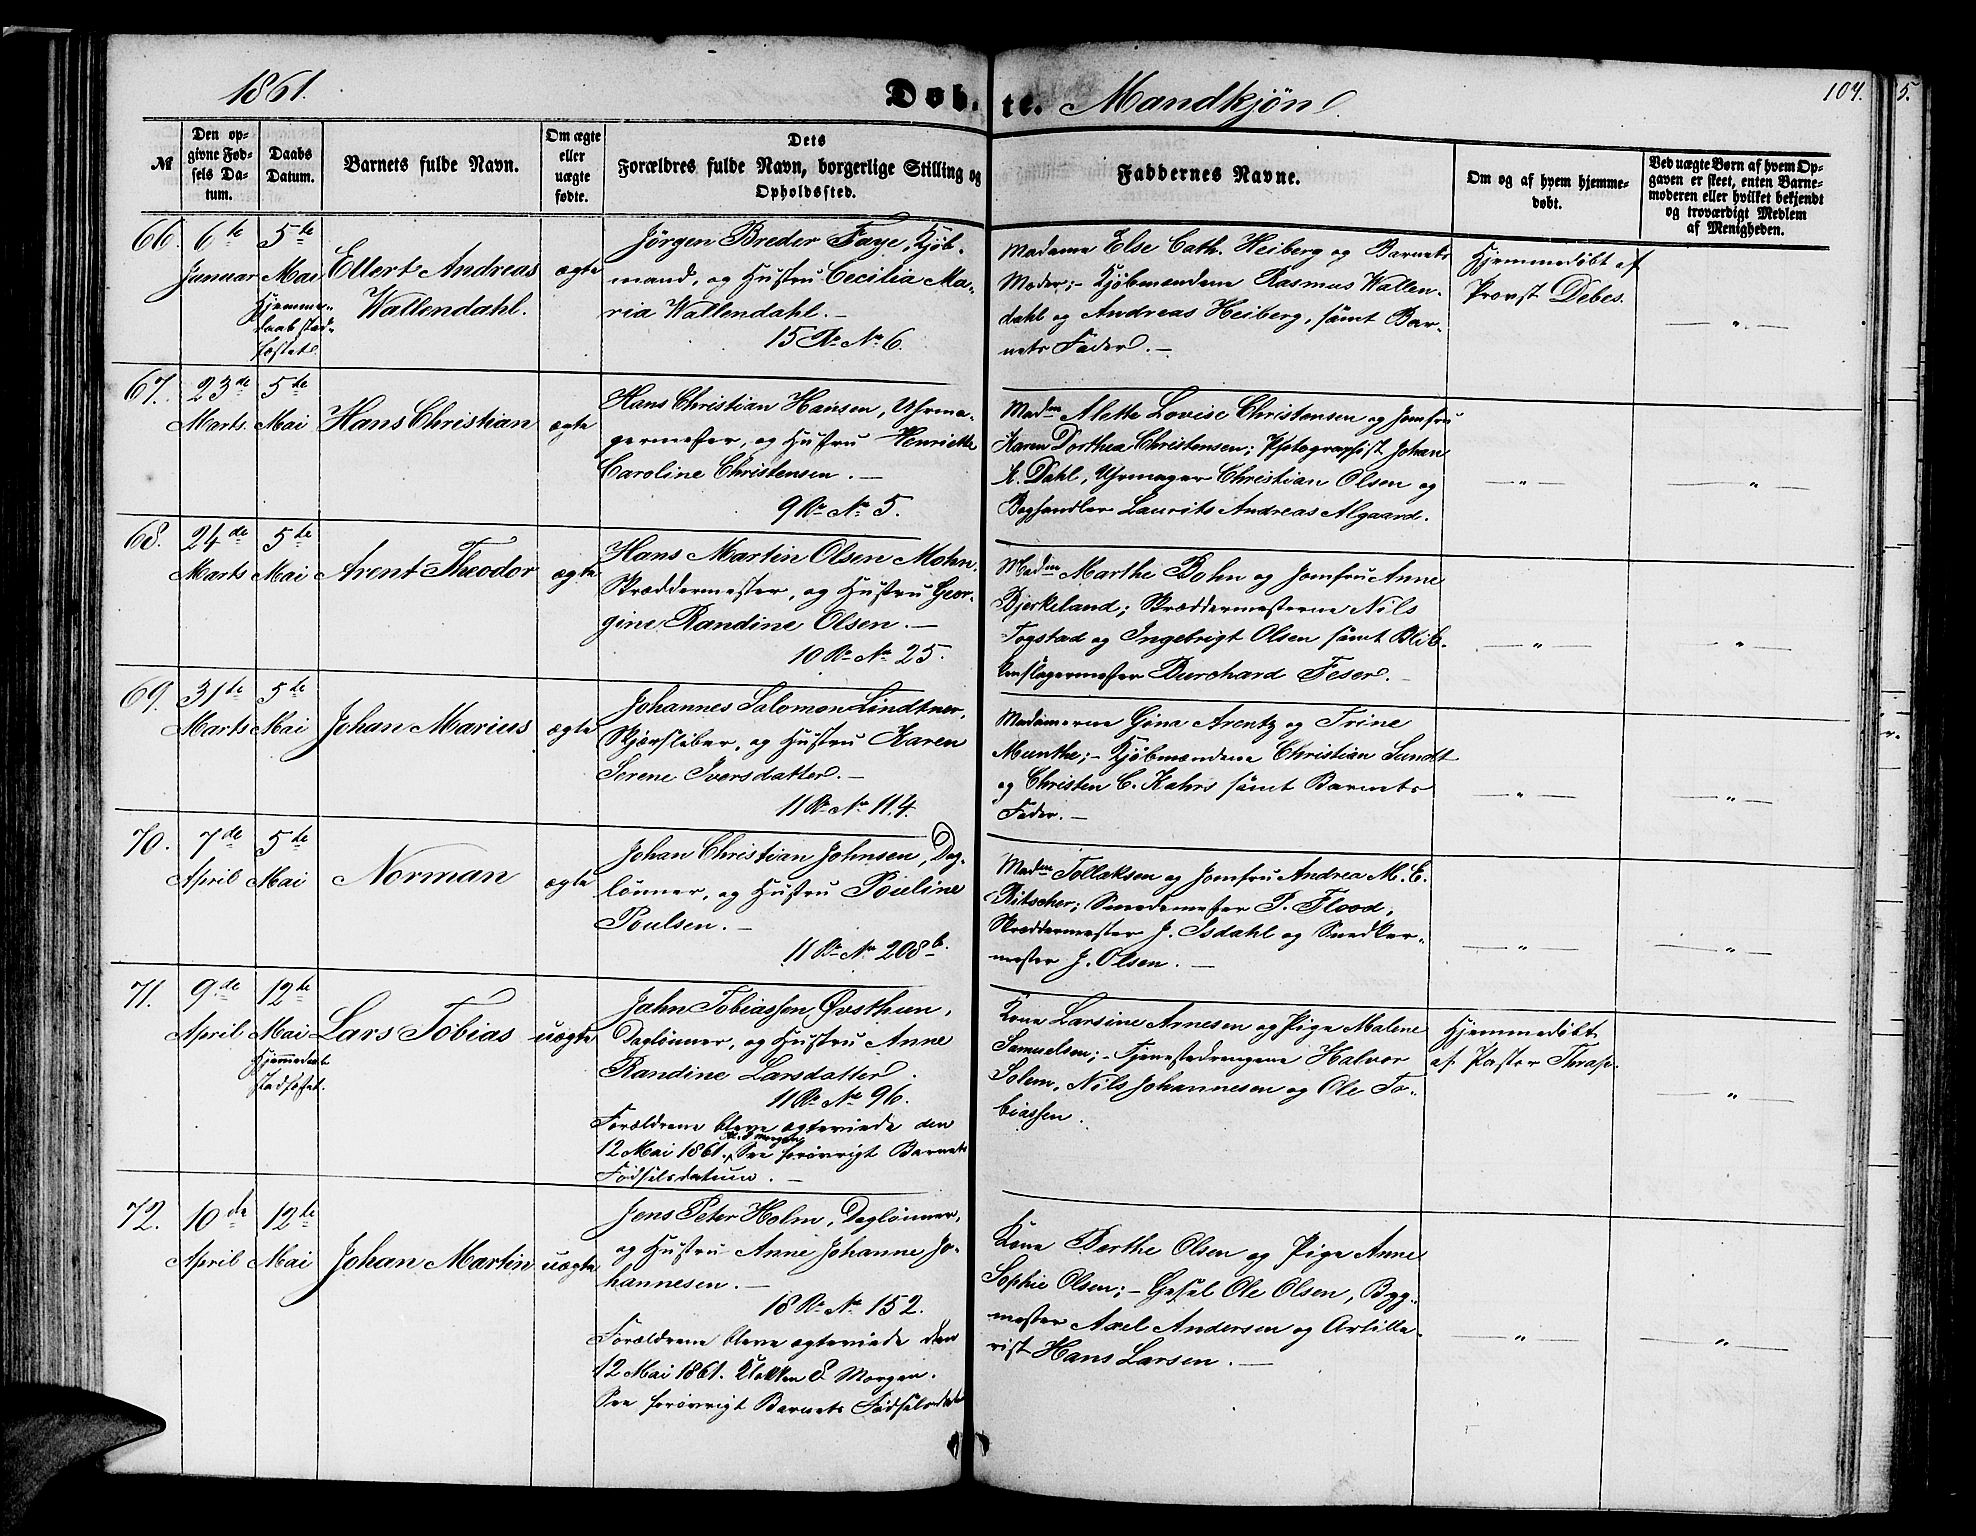 1861.
Døbte. Mandkjøn.
104.
5.
№
Den opgivne Fødsels Datum.
Daabs Datum.
Barnets fulde Navn.
Om ægte eller uægte fødte.
Dets Forældres fulde Navn, borgerlige Stilling og Opholdssted.
Faddernes Navne.
Om og af hvem hjemmedøbt.
Ved uægte Børn af hvem Opgaven er skeet, enten Barnemoderen eller hvilket bekjendt og troværdigt Medlem af Menigheden.
66. 6te Januar 5te Mai
Hjemmedaab stadfæstet.
Ellert Andreas
Wallendahl.
ægte
Jørgen Breder Faye, Kjøb-
mand, og Hustru Cecilia Ma-
ria Wallendahl. —
15 R. No 6.
Madame Else Cath. Heiberg og Barnets
Moder; – Kjøbmændene Rasmus Wallen-
dahl og Andreas Heiberg, samt Bar-
nets Fader. —
Hjemmedøbt af
Provst Debes.
— „ —
67. 23de Marts 5te Mai
Hans Christian
ægte
Hans Christian Hansen, Uhrma-
germester, og Hustru Henriette
Caroline Christensen. —
9 R. No 5.
Madm Alette Lovise Christensen og Jomfru
Karen Dorthea Christensen; Photographist Johan
K. Dahl, Uhrmager Christian Olsen og
Boghandler Laurits Andreas Algaard.
— „ —
— „ —
68. 24de Marts 5te Mai
Arent Theodor
ægte
Hans Martin Olsen Mohn,
Skræddermester, og Hustru Geor-
gine Randine Olsen. —
10 R. No 25.
Madm Marthe Bohn og Jomfru Anne
Bjerkeland; Skræddermesterne Nils
Togstad og Ingebrigt Olsen samt Blik-
kenslagermester Burchard Feser. —
— „ —
— „ —
69. 31te Marts 5te Mai
Johan Marius
ægte
Johannes Salomon Lindtner,
Skjærsliber, og Hustru Karen
Serene Iversdatter. —
11 R. No 114.
Madamerne Gina Arentz og Trine
Munthe; – Kjøbmændene Christian Sundt
og Christen C. Kahrs samt Barnets
Fader. —
— „ —
— „ —
70. 7de April 5te Mai
Norman
ægte
Johan Christian Johnsen, Dag-
lønner, og Hustru Pouline
Poulsen. —
11 R. No 208 b.
Madm Tollaksen og Jomfru Andrea M. E.
Ritscher; Smedemester P. Flood,
Skræddermester J. Isdahl og Snedker-
mester J. Olsen. —
— „ —
— „ —
71. 9de April 12te Mai
Hjemmedaab
stadfæstet.
Lars Tobias
uægte
John Tobiassen Øvsthun,
Daglønner, og Hustru Anne
Randine Larsdatter.
11 R. No 96.
Forældrene bleve ægteviede den
12 Mai 1861. Kl. 8 Morgen. See forøvrigt Barnets
Fødselsdatum. —
Kone Larsine Arnesen og Pige Malene
Samuelsen; – Tjenestedrengene Halvor
Solem, Nils Johannesen og Ole To-
biassen.
Hjemmedøbt
af Pastor Thrap.
— „ —
72. 10de April 12te Mai
Johan Martin
uægte
Jens Peter Holm, Daglønner,
og Hustru Anne Johanne Jo-
hannesen. —
18 R. No 152.
Forældrene bleve ægteviede den
12 Mai 1861. Klokken 8 Morgen.
See forøvrigt Barnets Fødselsdato
Kone Berthe Olsen og Pige Anne
Sophie Olsen; – Gesel Ole Olsen, Byg-
mester Axel Andersen og Artille-
rist Hans Larsen. —
— „ —
— „ —